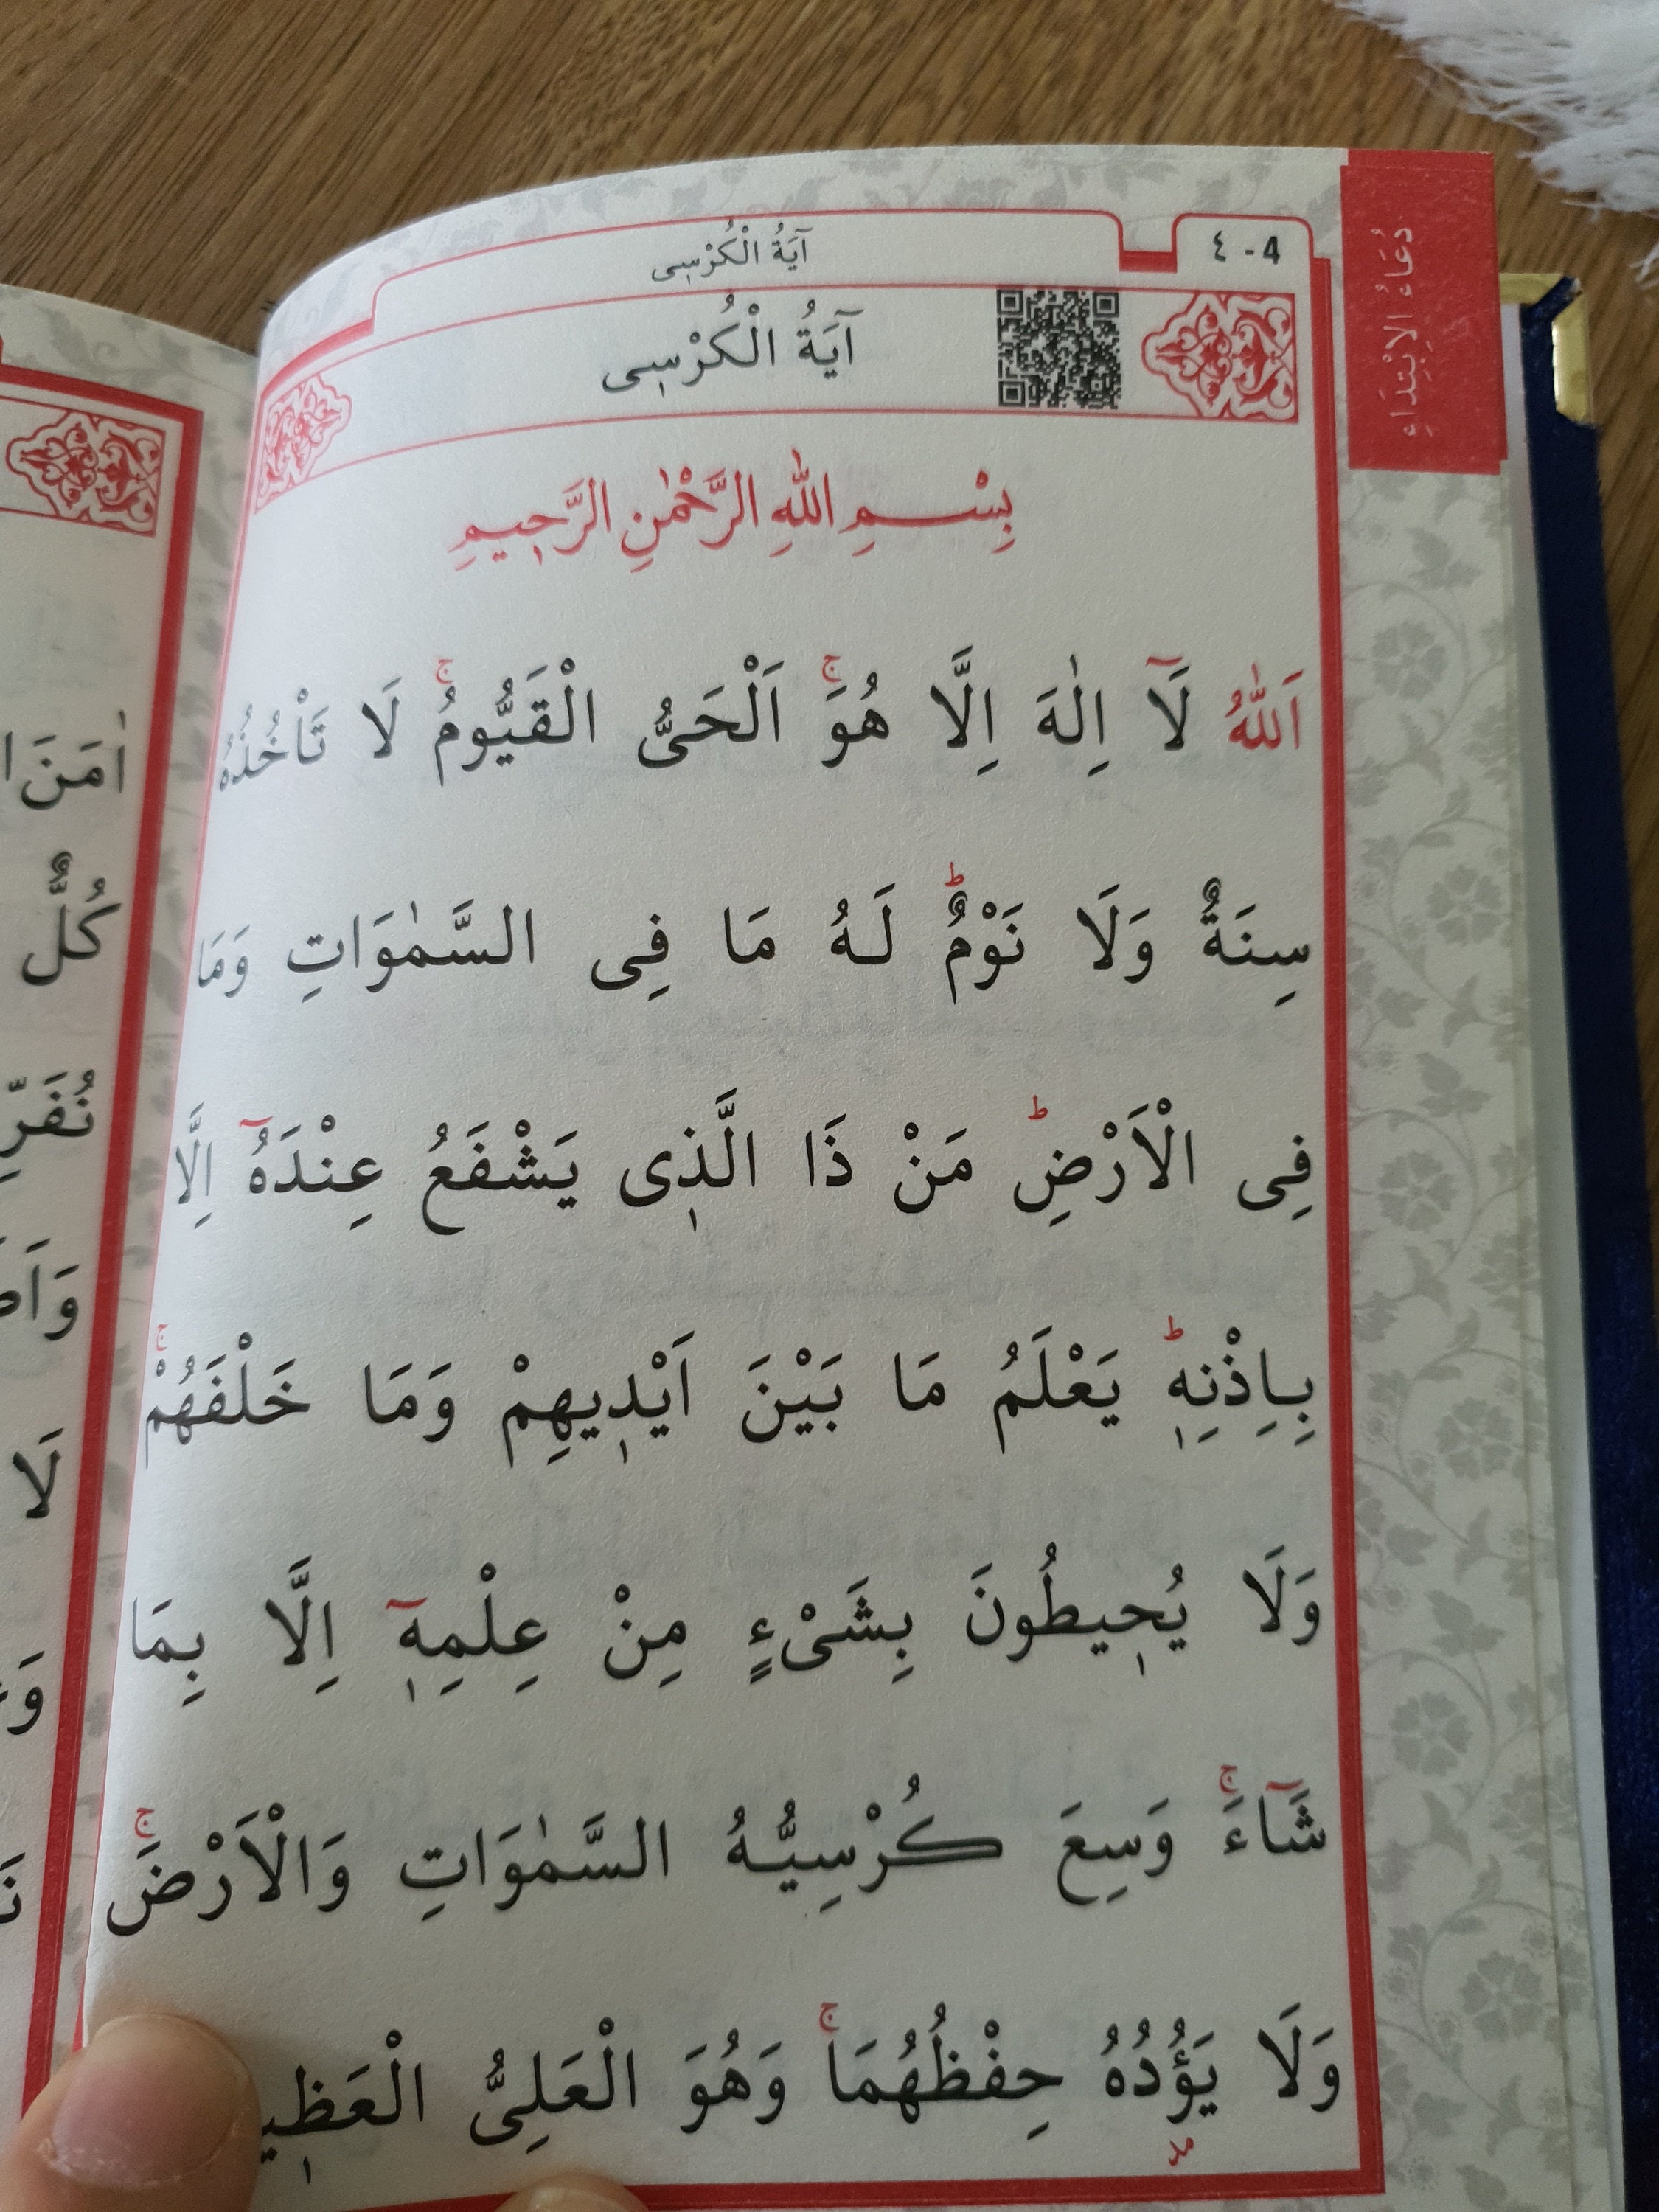 آيَةُ الْكُرْسِى
٤ - 4
دُعَاءُ الِابْتِدَاءِ
آيَةُ الْكُرْسِى
بِسْمِ اللّٰهِ الرَّحْمٰنِ الرَّحِيمِ
اَللّٰهُ لَآ اِلٰهَ اِلَّا هُوَۚ اَلْحَىُّ الْقَيُّومُۚ لَا تَاْخُذُهُ
سِنَةٌ وَلَا نَوْمٌؕ لَهُ مَا فِى السَّمٰوَاتِ وَمَا
فِى الْاَرْضِؕ مَنْ ذَا الَّذٖى يَشْفَعُ عِنْدَهُٓ اِلَّا
بِاِذْنِهٖؕ يَعْلَمُ مَا بَيْنَ اَيْدٖيهِمْ وَمَا خَلْفَهُمْۚ
وَلَا يُحٖيطُونَ بِشَىْءٍ مِنْ عِلْمِهٖٓ اِلَّا بِمَا
شَٓاءَۚ وَسِعَ كُرْسِيُّهُ السَّمٰوَاتِ وَالْاَرْضَۚ
وَلَا يَؤُدُهُ حِفْظُهُمَاۚ وَهُوَ الْعَلِىُّ
اٰمَنَ
كُلٌّ
لَا